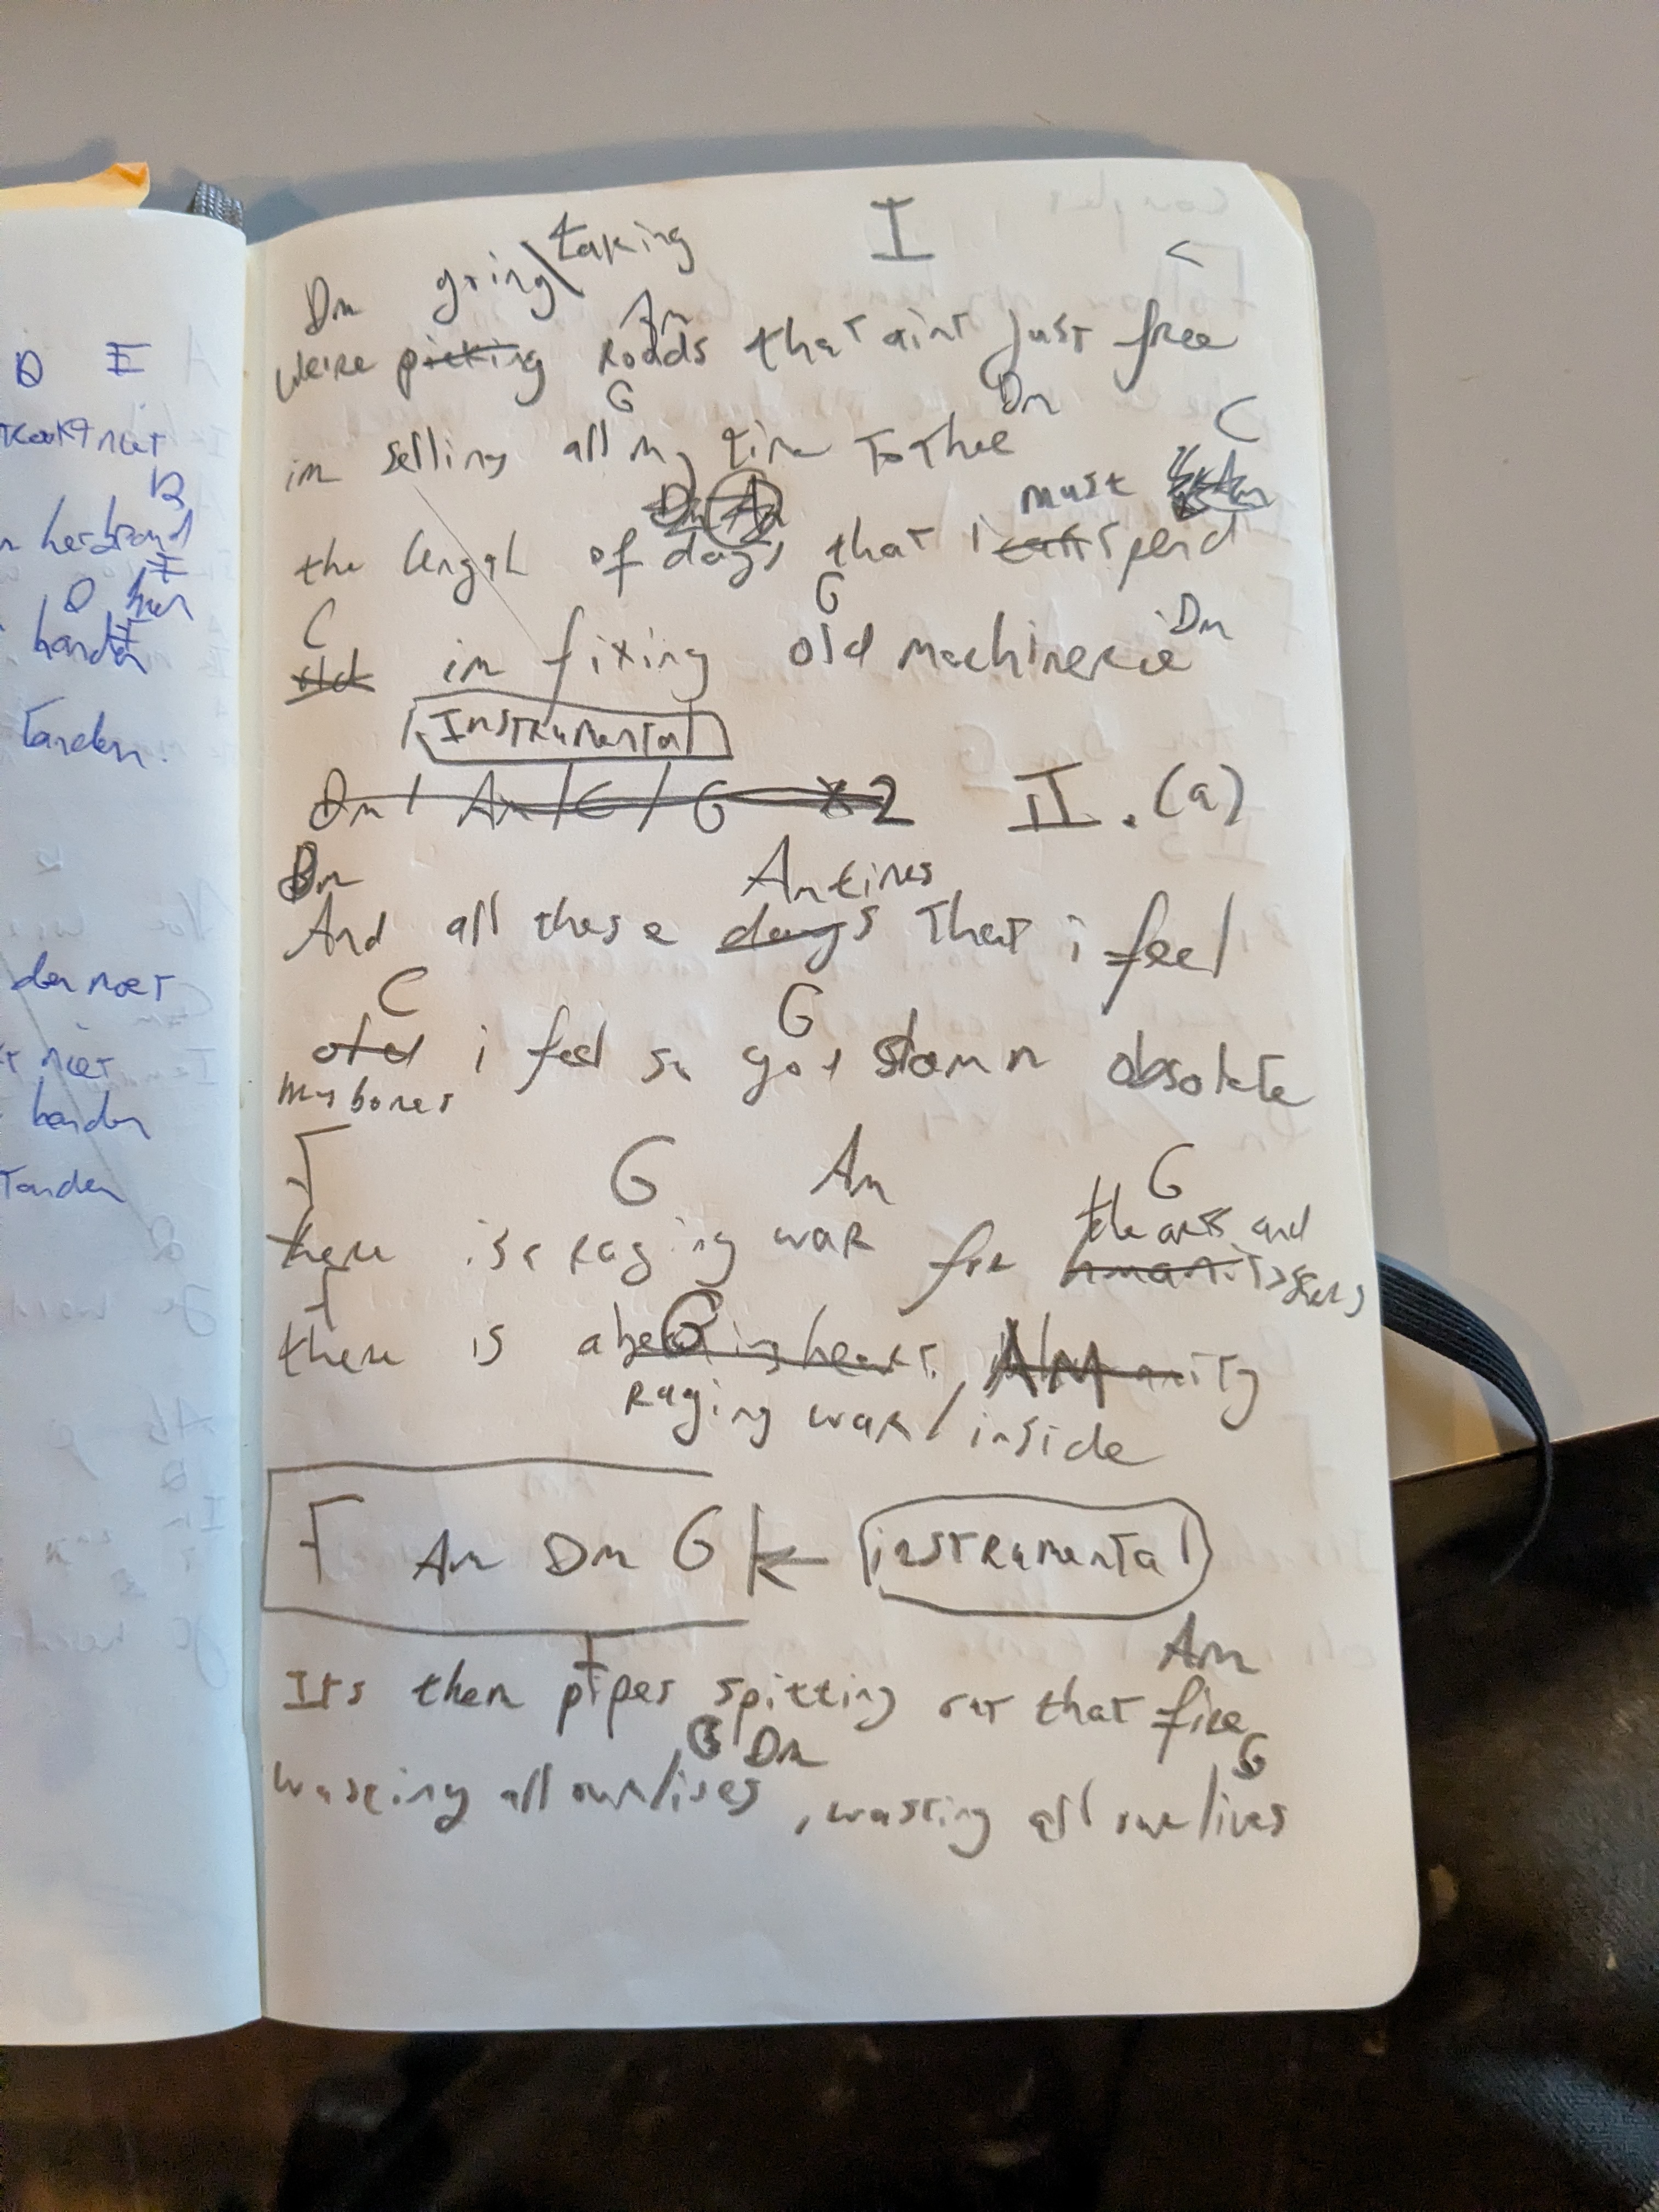 D E
niet
B
herbrand
E
D
handen
Tanden.
der moet
niet
handen
Tanden
I
going \ taking
Dm Am C
We're picking Roads that aint just free
G Dm
im selling all my time to thee
C
must
the length of days that i can spend
C G Dm
old im fixing old machinerie
Instrumental
Dm / Am / C / G x2 II. (a)
Dm Am times
And all these days that i feel
C G
old i feel so god damn obsolete
my bones
F G Am G
the arts and
there is a raging war for humanity
F G AM
there is a beating heart,
raging war / inside
F Am Dm G ← instrumental
F Am
Its them pipes spitting out that fire
G Dm G
wasting all our lives, wasting all our lives